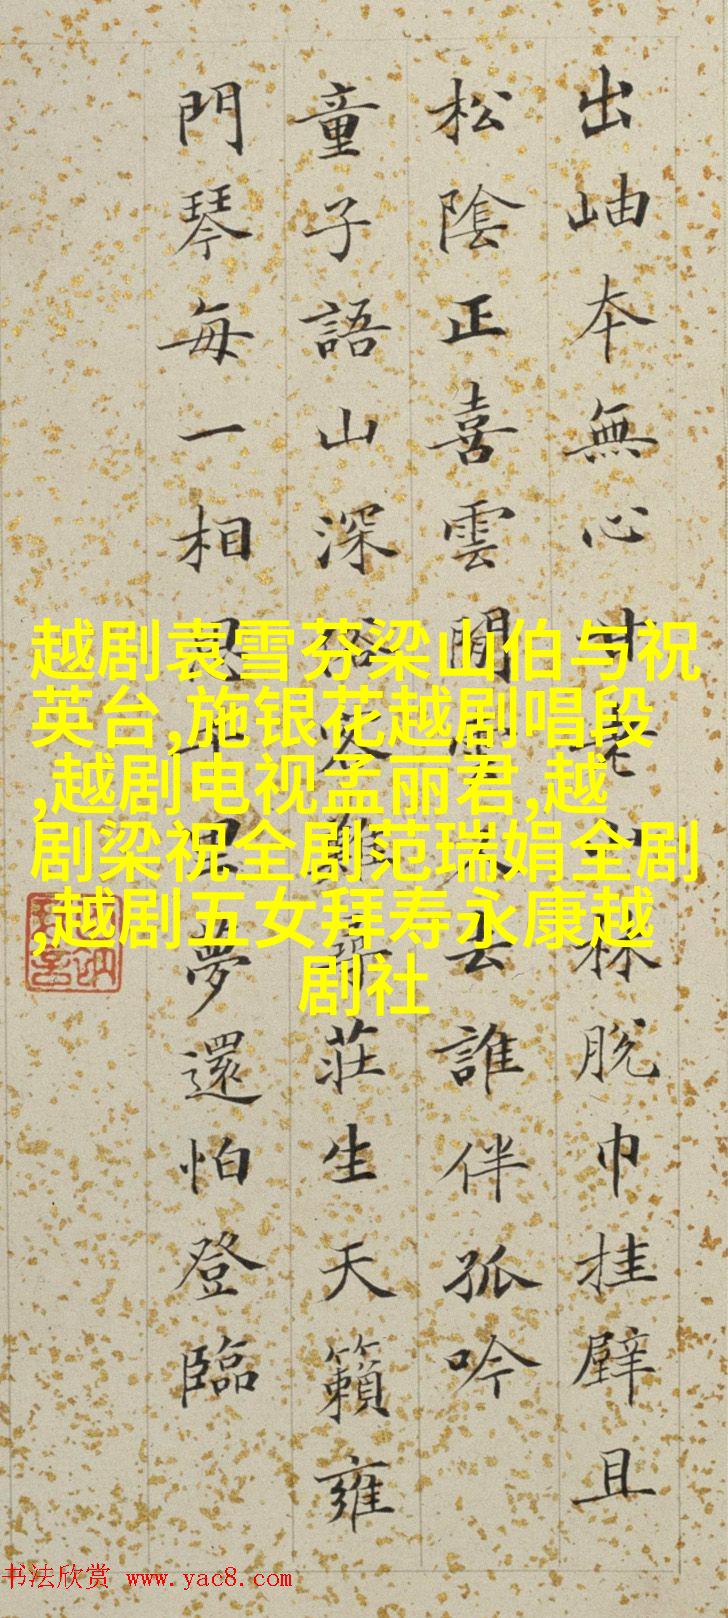 出岫本無心林脫巾挂壁且
松陰正喜雲閒去誰伴孤吟
童子語山深難尋莊生天籟雍
門琴每一相思千里夢還怕登臨
越剧袁雪芬梁山伯与祝
英台,施银花越剧唱段
,越剧电视孟丽君,越
剧梁祝全剧范瑞娟全剧
,越剧五女拜寿永康越
剧社
书法欣赏 www.yac8.com